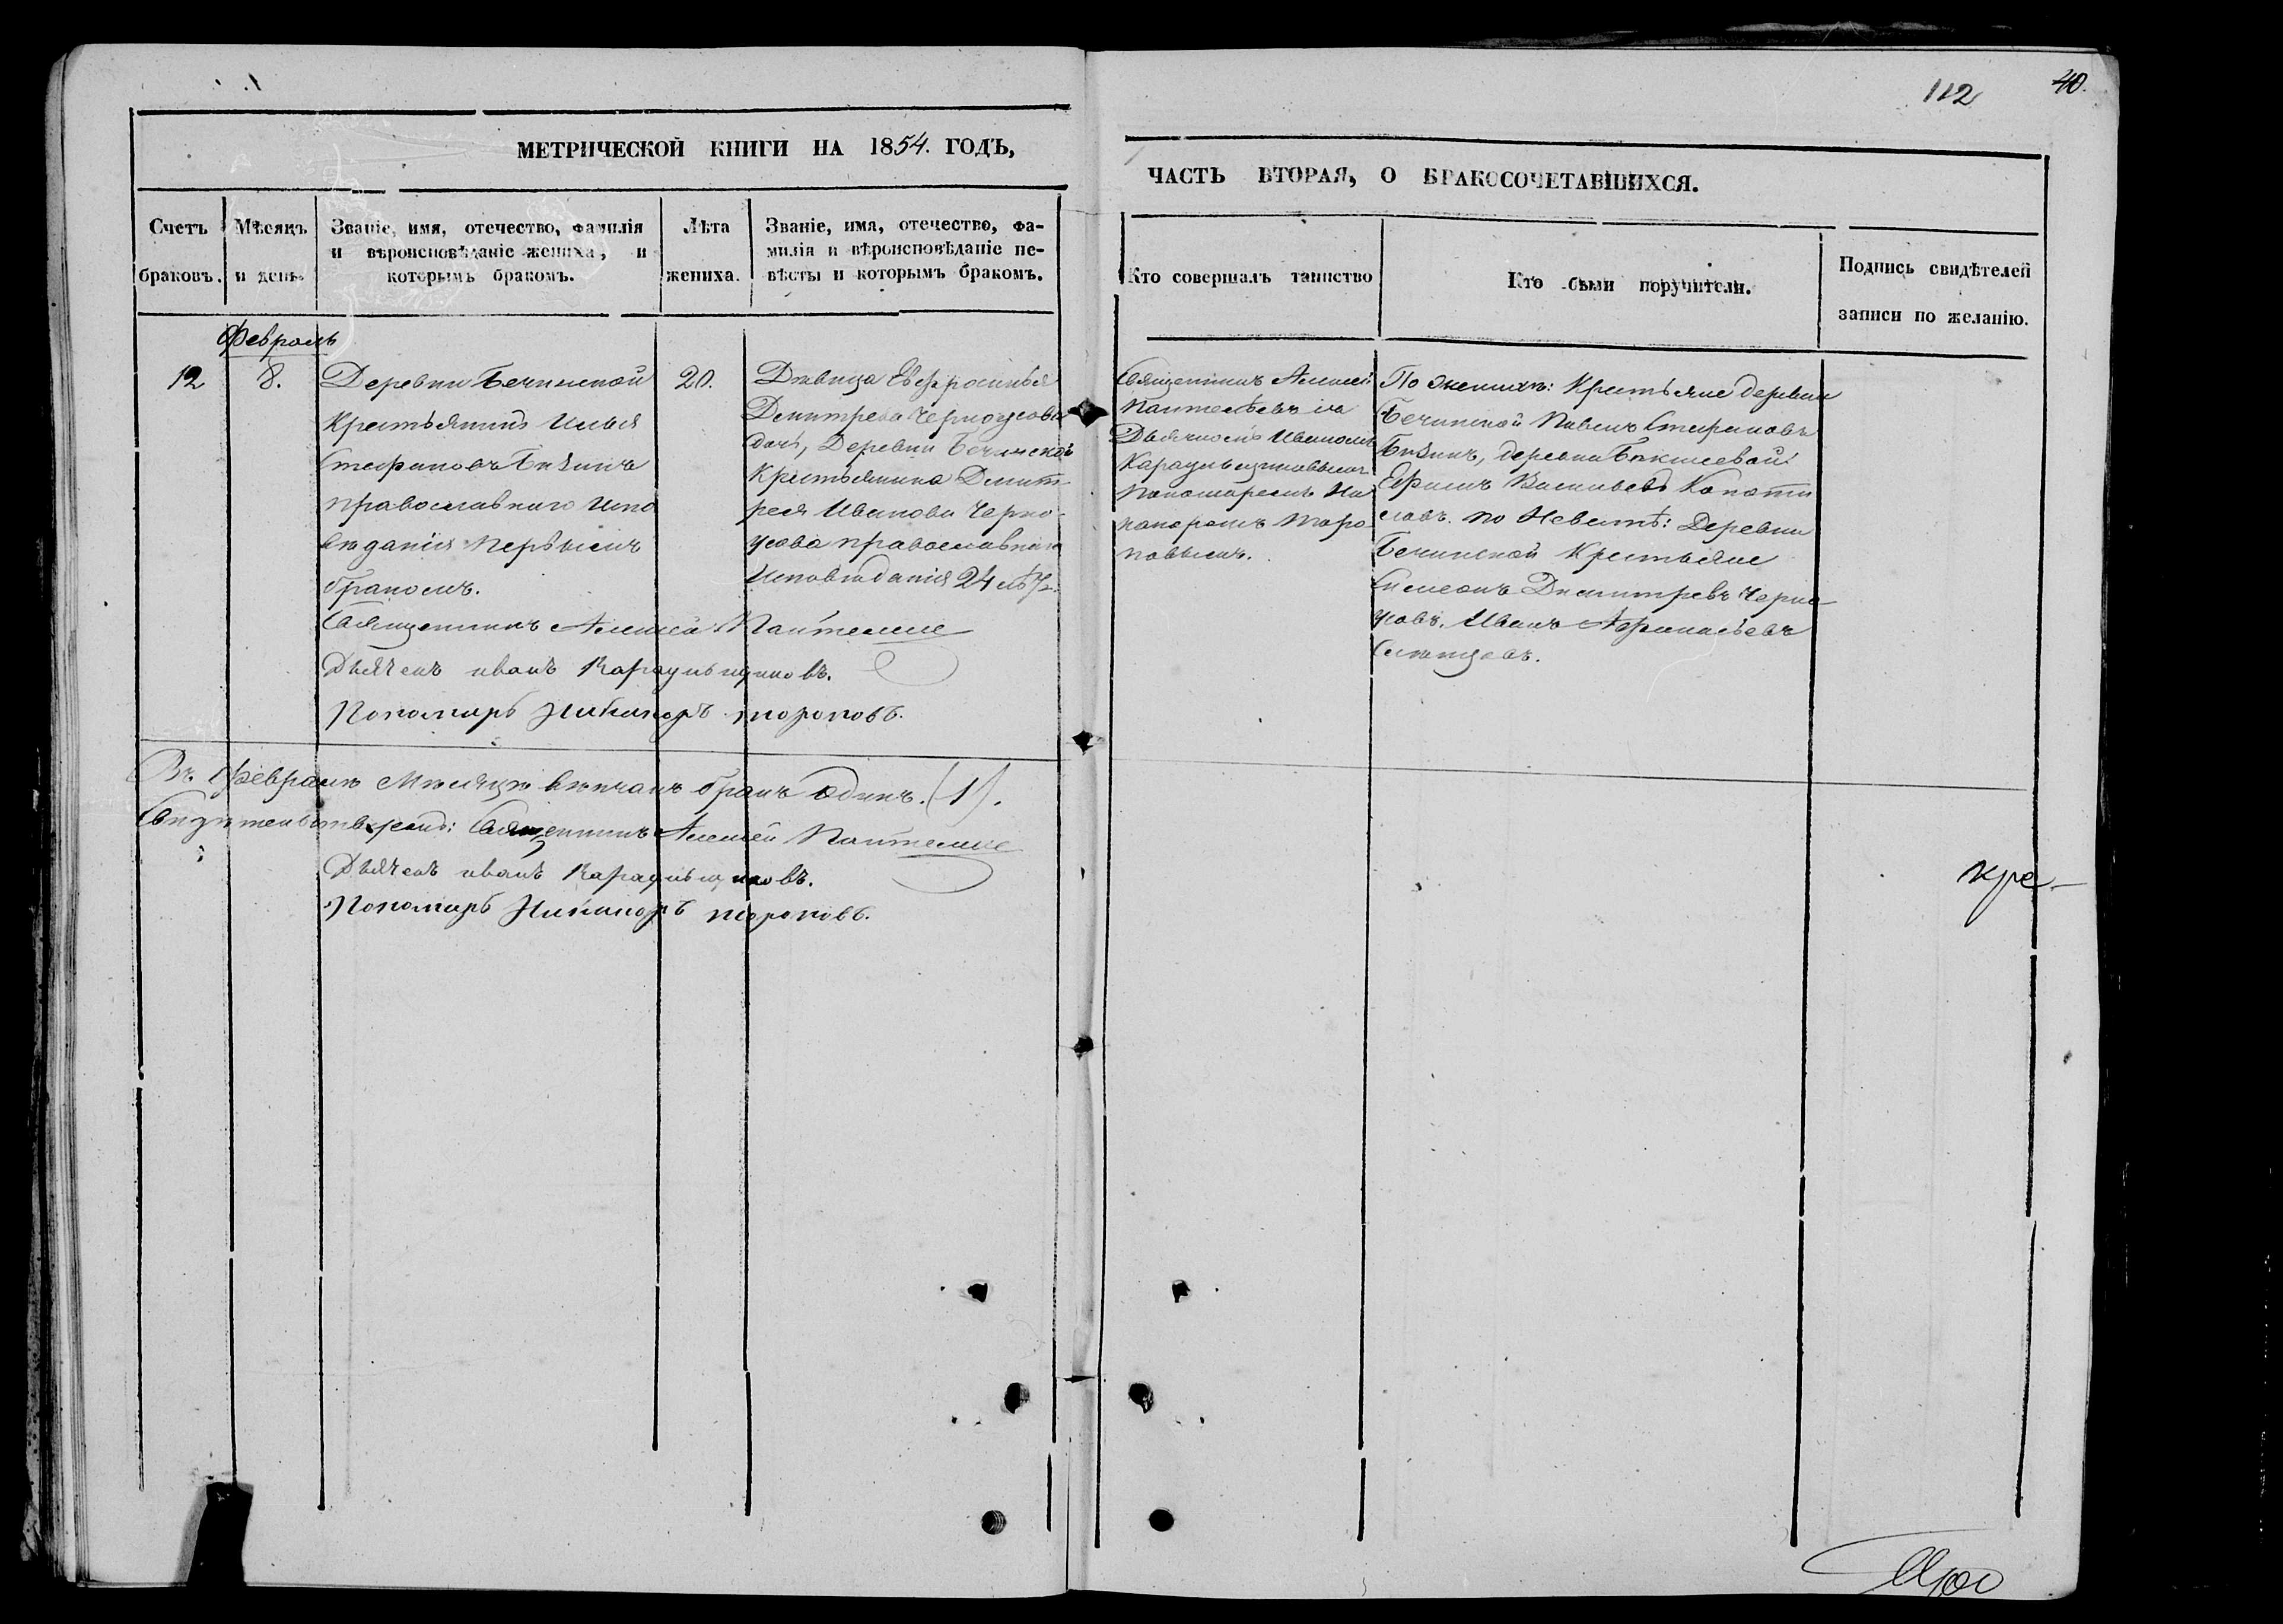 112
40.
МЕТРИЧЕСКОЙ КНИГИ НА 1854. ГОДЪ,
ЧАСТЬ ВТОРАЯ, О БРАКОСОЧЕТАВШИХСЯ.
Счетъ браковъ.
Мѣсяцъ и день.
Званіе, имя, отечество, фамилія
и вѣроисповѣданіе жениха, и
которымъ бракомъ.
Лѣта жениха.
Званіе, имя, отечество, фа-
милія и вѣроисповѣданіе не-
вѣсты и которымъ бракомъ.
Кто совершалъ таинство
Кто были поручители.
Подпись свидѣтелей
записи по желанію.
Февраль
12
8.
Деревни Бечинской
Крестьянинъ Илья
Стефановъ Бизинъ
православнаго Испо
вѣданія первымъ
бракомъ.
20.
Дѣвица Евфросинья
Димитрева Черноусова
дочь, Деревни Бечинской
Крестьянина Димит-
рея Иванова Черно-
усова православнаго
Исповѣданія 24 лѣтъ.
Священникъ Алексей
Пантелѣевъ съ
Дьячкомъ Иваномъ
Караульщиковымъ
Пономаремъ Ни
каноромъ Торо
повымъ.
По женихѣ: Крестьяне деревни
Бечинской Павелъ Стефановъ
Бизинъ, деревни Бакшеевой
Ефимъ Васильевъ
по Невѣстѣ: Деревни
Бечинской Крестьяне
Симеонъ Димитревъ Черно-
усовъ. Иванъ Афанасьевъ
Священникъ Алексей
Дьячекъ иванъ Караульщиковъ.
Пономарь Никаноръ тороповъ.
Въ Февралѣ Мѣсяцѣ вѣнчанъ бракъ Одинъ. (1).
Священникъ Алексей
Дьячекъ иванъ Караульщиковъ.
Пономарь Никаноръ тороповъ.